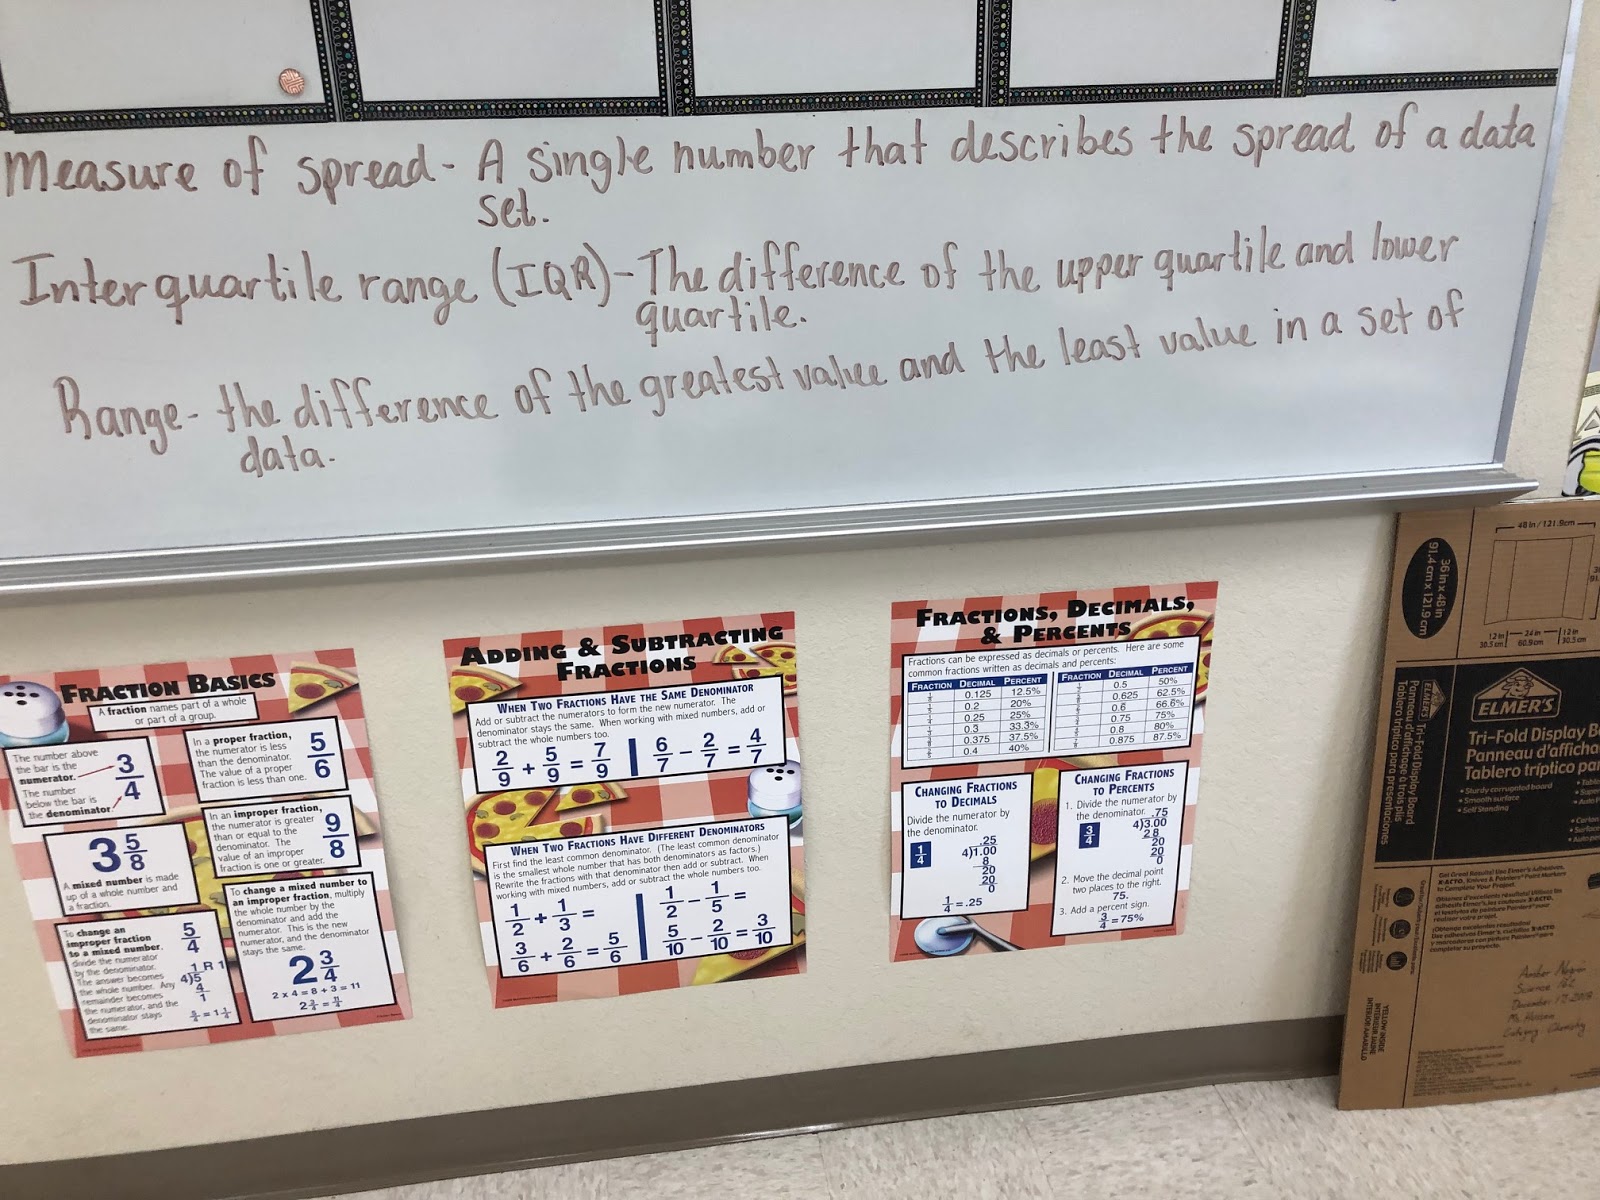 Measure of spread - A single number that describes the spread of a data
set.
Interquartile range (IQR) - The difference of the upper quartile and lower
quartile.
Range - the difference of the greatest value and the least value in a set of
data.
FRACTION BASICS
A fraction names part of a whole
or part of a group.
The number above
the bar is the
numerator.
The number
below the bar is
the denominator.
3/4
In a proper fraction,
the numerator is less
than the denominator.
The value of a proper
fraction is less than one.
5/6
3 5/8
A mixed number is made
up of a whole number and
a fraction.
In an improper fraction,
the numerator is greater
than or equal to the
denominator. The
value of an improper
fraction is one or greater.
9/8
To change an
improper fraction
to a mixed number,
divide the numerator
by the denominator.
The answer becomes
the whole number. Any
remainder becomes
the numerator, and the
denominator stays
the same.
5/4
1 R 1
4)5
4
1
5/4 = 1 1/4
To change a mixed number to
an improper fraction, multiply
the whole number by the
denominator and add the
numerator. This is the new
numerator, and the denominator
stays the same.
2 3/4
2 x 4 = 8 + 3 = 11
2 3/4 = 11/4
ADDING & SUBTRACTING
FRACTIONS
WHEN TWO FRACTIONS HAVE THE SAME DENOMINATOR
Add or subtract the numerators to form the new numerator. The
denominator stays the same. When working with mixed numbers, add or
subtract the whole numbers too.
2/9 + 5/9 = 7/9
6/7 − 2/7 = 4/7
WHEN TWO FRACTIONS HAVE DIFFERENT DENOMINATORS
First find the least common denominator. (The least common denominator
is the smallest whole number that has both denominators as factors.)
Rewrite the fractions with that denominator then add or subtract. When
working with mixed numbers, add or subtract the whole numbers too.
1/2 + 1/3 =
3/6 + 2/6 = 5/6
1/2 − 1/5 =
5/10 − 2/10 = 3/10
FRACTIONS, DECIMALS,
& PERCENTS
Fractions can be expressed as decimals or percents. Here are some
common fractions written as decimals and percents:
FRACTION DECIMAL PERCENT
0.125 12.5%
0.2 20%
0.25 25%
0.3 33.3%
0.375 37.5%
0.4 40%
FRACTION DECIMAL PERCENT
0.5 50%
0.625 62.5%
0.6 66.6%
0.75 75%
0.8 80%
0.875 87.5%
CHANGING FRACTIONS
TO DECIMALS
Divide the numerator by
the denominator.
1/4
.25
4)1.00
8
20
20
0
1/4 = .25
CHANGING FRACTIONS
TO PERCENTS
1. Divide the numerator by
the denominator.
3/4
.75
4)3.00
28
20
20
0
2. Move the decimal point
two places to the right.
75.
3. Add a percent sign.
3/4 = 75%
48 in / 121.9cm
36 in x 48 in
91.4 cm x 121.9 cm
12 in
30.5 cm
24 in
60.9cm
12 in
30.5 cm
ELMER'S
Tri-Fold Display
Panneau d'affichage
Tablero tríptico
• Sturdy corrugated board
• Smooth surface
• Self Standing
ELMER'S Tri-Fold Display Board
Panneau d'affichage à trois plis
Tablero tríptico para presentaciones
Get Great Results! Use Elmer's Adhesives,
X-ACTO, Knives & Painters Paint Markers
to Complete Your Project.
YELLOW INSIDE
INTÉRIEUR JAUNE
INTERIOR AMARILLO
Amber
Science
December 17, 2018